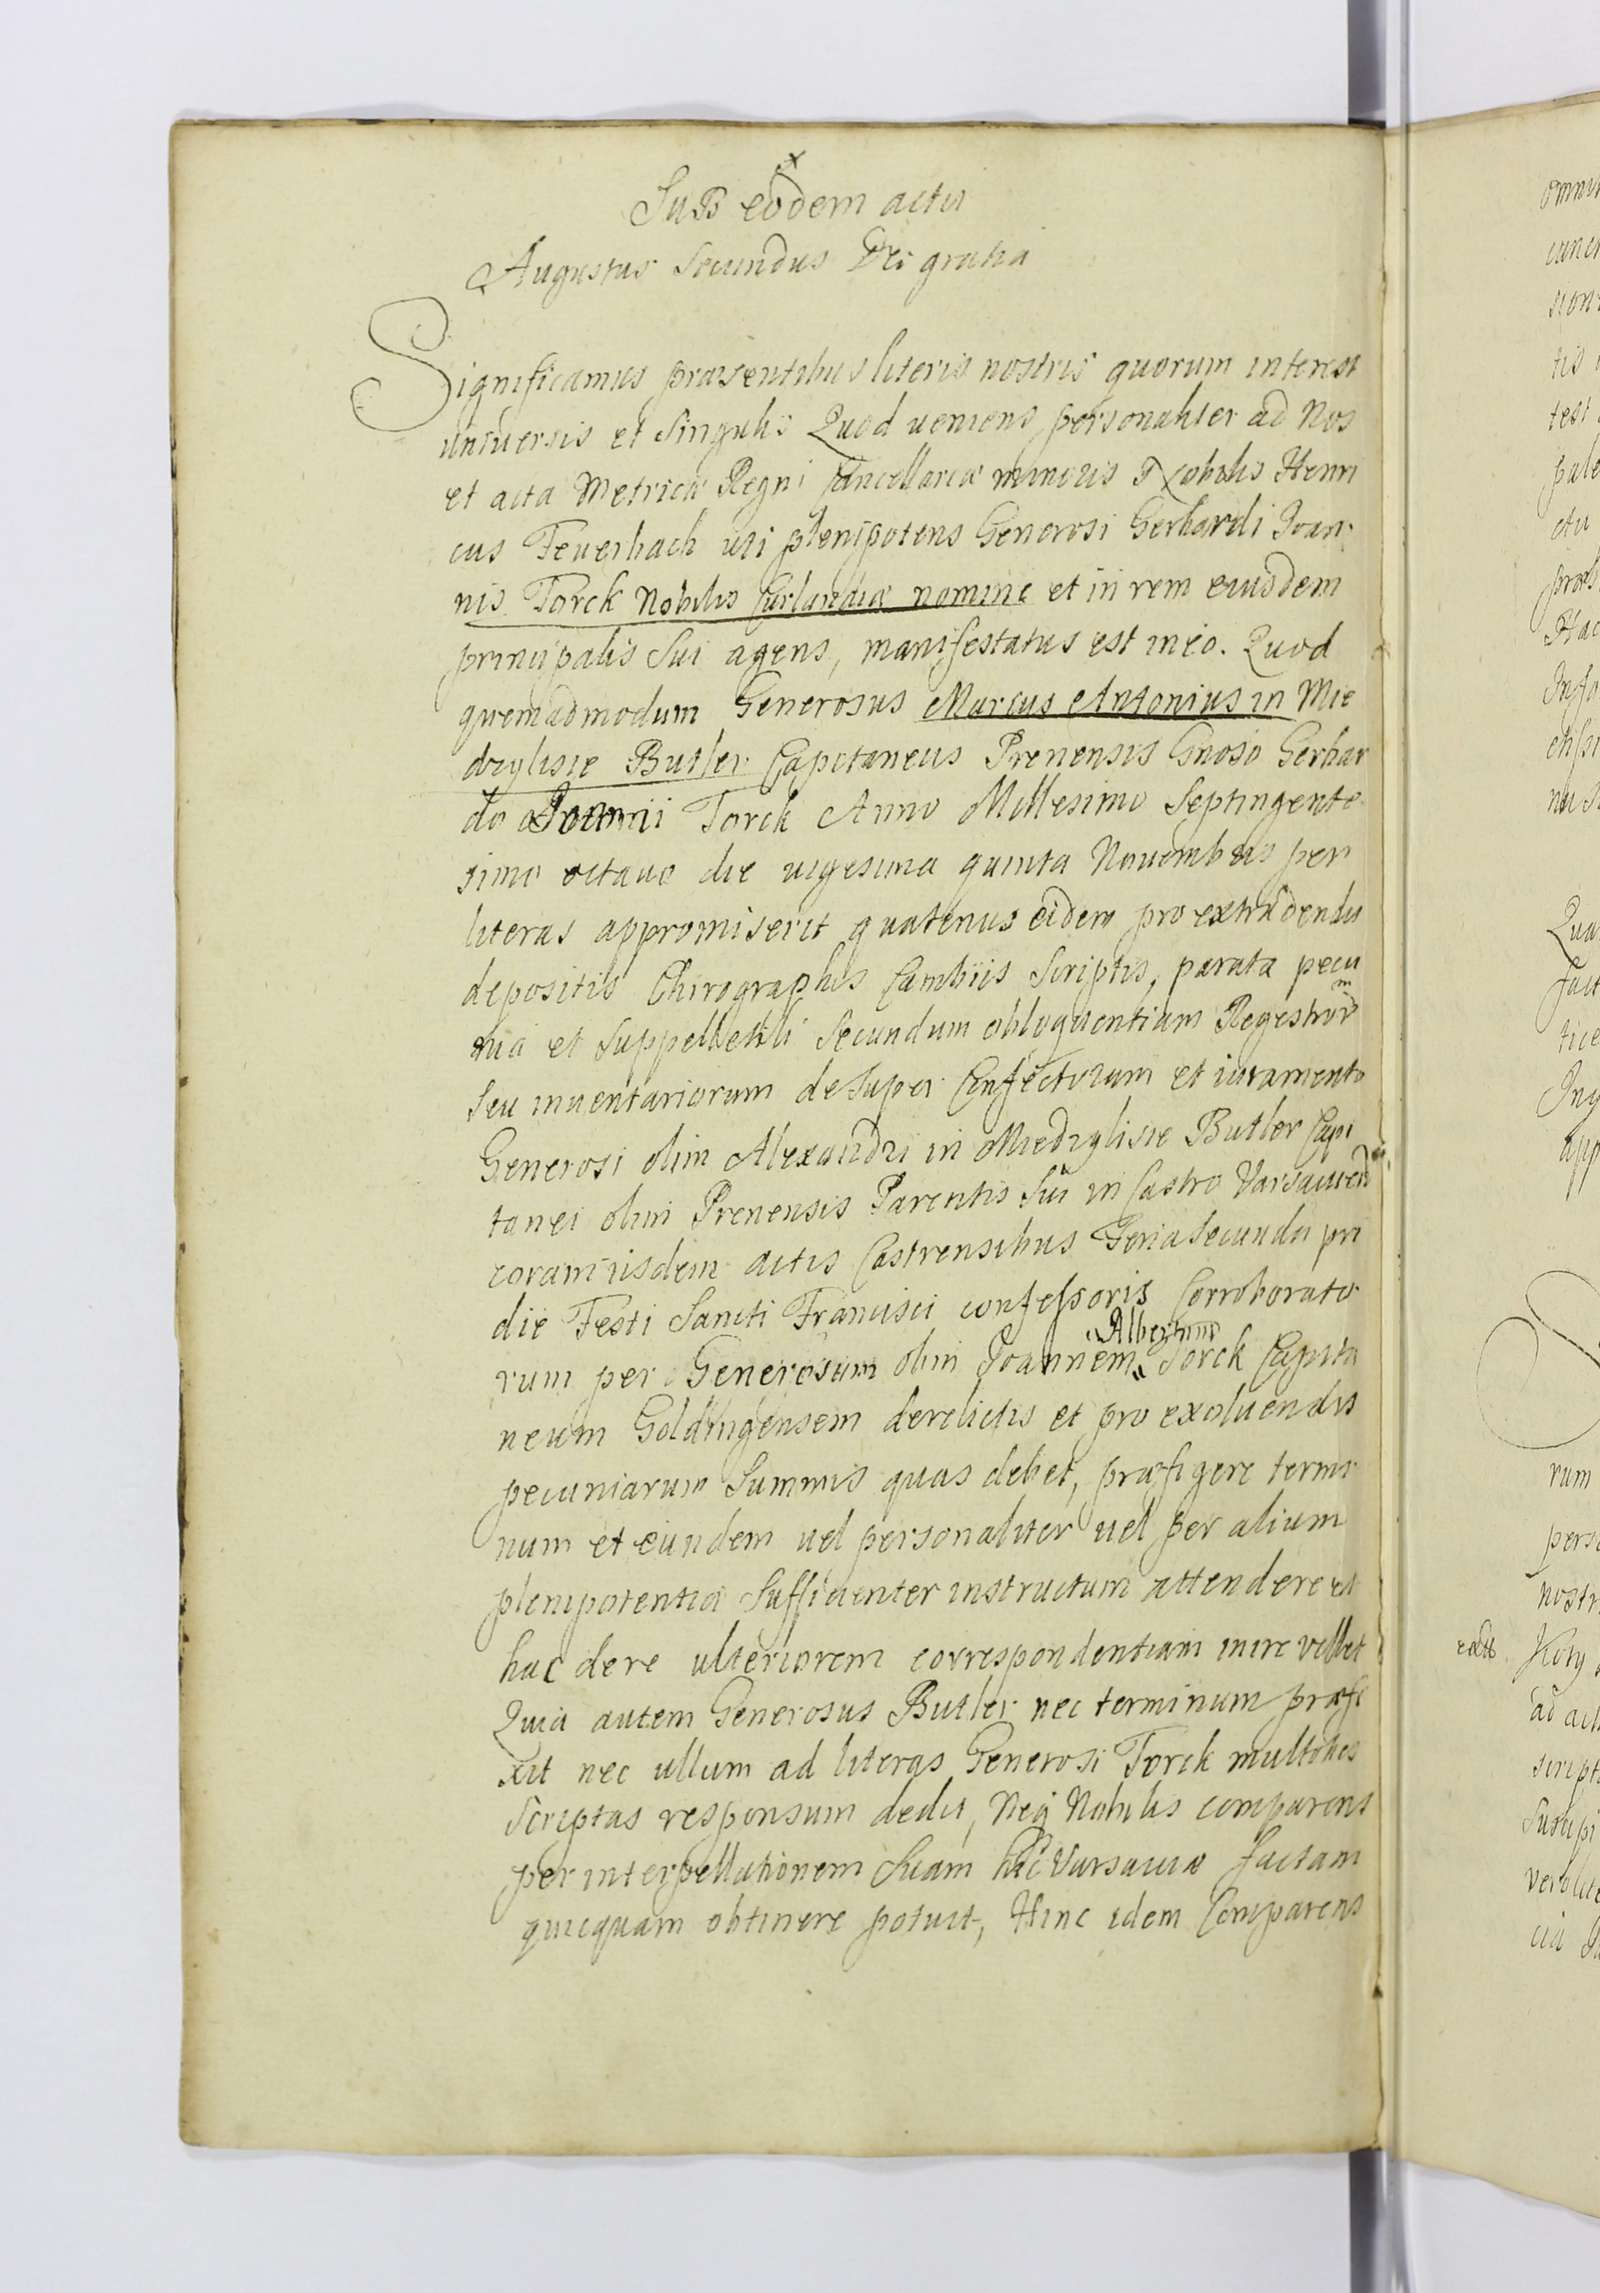 Sub eodem actu
Augustus Secundus Dei gratia
Significamus praesentibus literis nostris quorum interest
universis et singulis Quod veniens personaliter ad Nos
et acta Metricae Regni Cancellariae minoris Nobilis Henri
cus Feuerbach uti plenipotens Generosi Gerhardi Joan
nis Torck Nobilis Curlandiae nomine et in rem eiusdem
principalis sui agens, manifestatus est in eo. Quod
quemadmodum Generosus Marcus Antonius in Mie
dzylisie Butler Capitaneus Prenensis Gnoso Gerhar
do Joanni Torck Anno Millesimo Septingente
simo octavo die vigesima quinta Novembris per
literas appromiserit quatenus eidem pro extradendis
depositis Chirographis Cambiis Scriptis, parata pecu
nia et suppellectili secundum obloquentiam Regestrorm
seu inventariorum desuper Confectorum et iuramento
Generosi olim Alexandri in Miedzylisie Butler Capi
tanei olim Prenensis Parentis sui in Castro Varsavien
coram iisdem actis Castrensibus Feria secunda pri
die Festi Sancti Francisci confessoris Corroborato
rum per Generosum olim Joannem Albertum Torck Capita
neum Goldingensem derelictis et pro exolvendis
pecuniarum Summis quas debet, praefigere termi
num et eundem vel personaliter vel per alium
plenipotentia sufficienter instructum attendere et
hac de re ulteriorem correspondentiam inire vellet
Quia autem Generosus Butler nec terminum praefi
xit nec ullum ad literas Generosi Torck multoties
scriptas responsum dedit, Neq Nobilis comparens
per interpellationem suam hic Varsaviae factam
quicquam obtinere potuit, Hinc idem Comparens